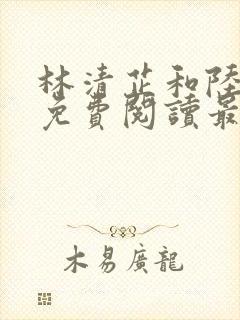 林清芷和陸
免費閱讀最
木易廣龍